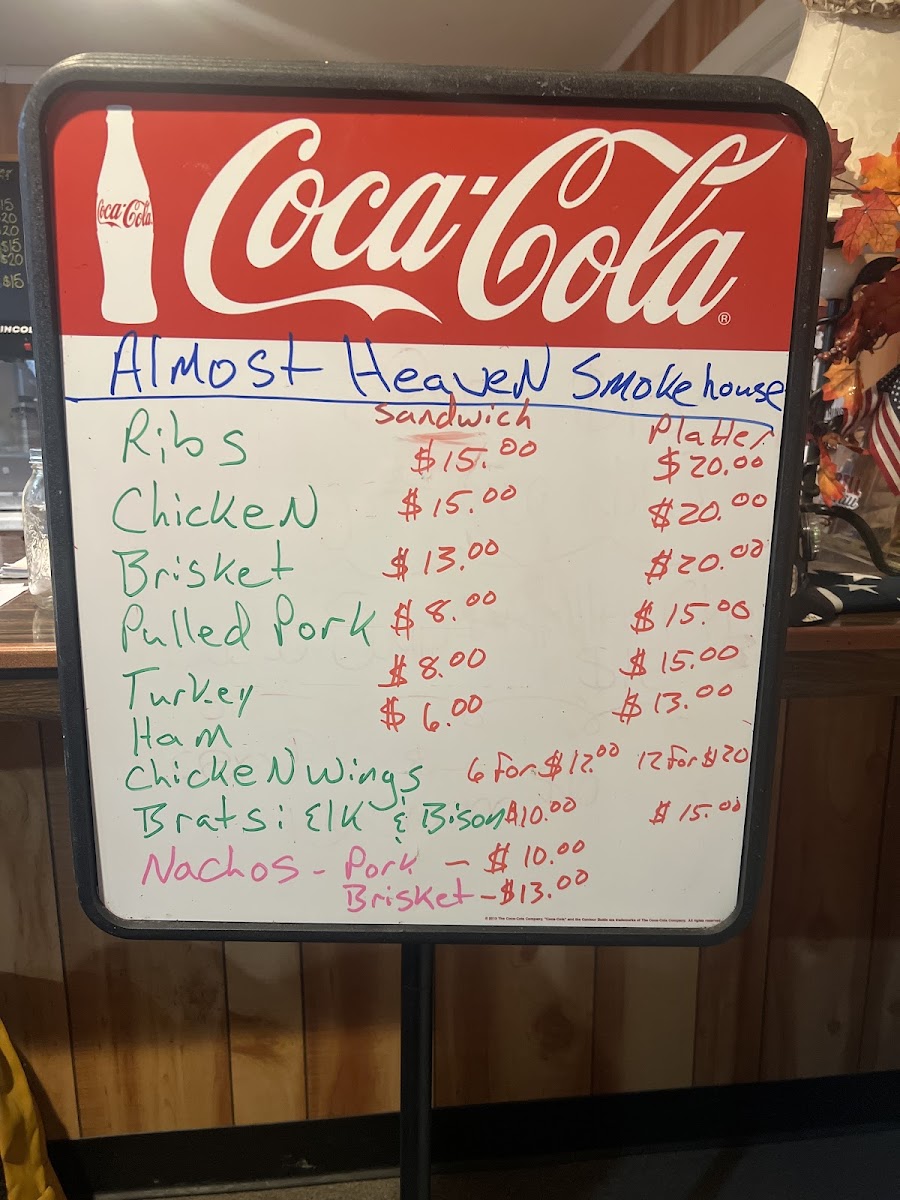 Coca-Cola
Coca-Cola ®
Almost Heaven Smokehouse
Sandwich Platter
Ribs $15.00 $20.00
Chicken $15.00 $20.00
Brisket $13.00 $20.00
Pulled Pork $8.00 $15.00
Turkey $8.00 $15.00
Ham $6.00 $13.00
Chicken Wings 6 for $12.00 12 for $20
Brats: Elk & Bison $10.00 $15.00
Nachos - Pork - $10.00
Brisket - $13.00
15
20
20
$15
$20
$15